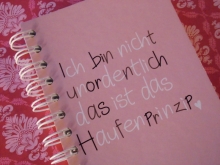 Ich bin nicht
unordentlich
das ist das
Haufenprinzip